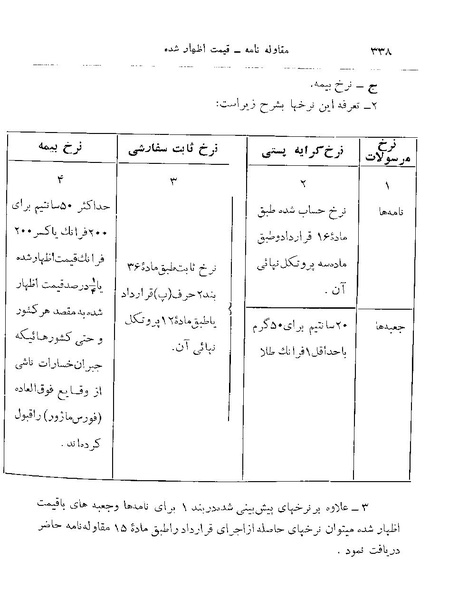 ۳۳۸
مقاوله نامه ــ قیمت اظهار شده
ج ــ نرخ بیمه.
۲ــ تعرفه این نرخها بشرح زیراست:
نرخ مرسولات
نرخ کرایه پستی
نرخ ثابت سفارشی
نرخ بیمه
۱
۲
۳
۴
نامه‌ها
نرخ حساب شده طبق
مادهٔ ۱۶ قرارداد وطبق
ماده‌سه پروتکل نهائی
آن.
جعبه‌ها
۲۰ سانتیم برای ۵۰ گرم
با حداقل ۱ فرانك طلا
نرخ ثابت طبق مادهٔ ۳۶
بند ۲ حرف (پ) قرارداد
یا طبق مادهٔ ۱۲ پروتکل
نهائی آن.
حداکثر ۵۰ سانتیم برای
۲۰۰ فرانك یا کسر ۲۰۰
فرانك قیمت اظهار شده
یا ¼ درصد قیمت اظهار
شده به مقصد هر کشور
و حتی کشورهائیکه
جبران خسارات ناشی
از وقایع فوق‌العاده
(فورس ماژور) را قبول
کرده‌اند.
۳ ــ علاوه بر نرخهای پیش‌بینی شده در بند ۱ برای نامه‌ها وجعبه های باقیمت
اظهار شده میتوان نرخهای حاصله از اجرای قرارداد راطبق مادهٔ ۱۵ مقاوله‌نامه حاضر
دریافت نمود .